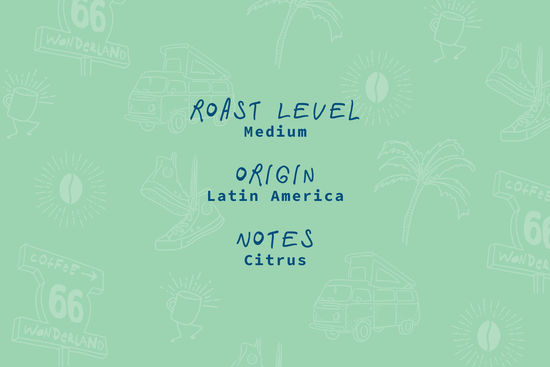 66
WONDERLAND
ROAST LEVEL
Medium
ORIGIN
Latin America
NOTES
Citrus
COFFEE
66
WONDERLAND
COFFEE →
66
WONDERLAND